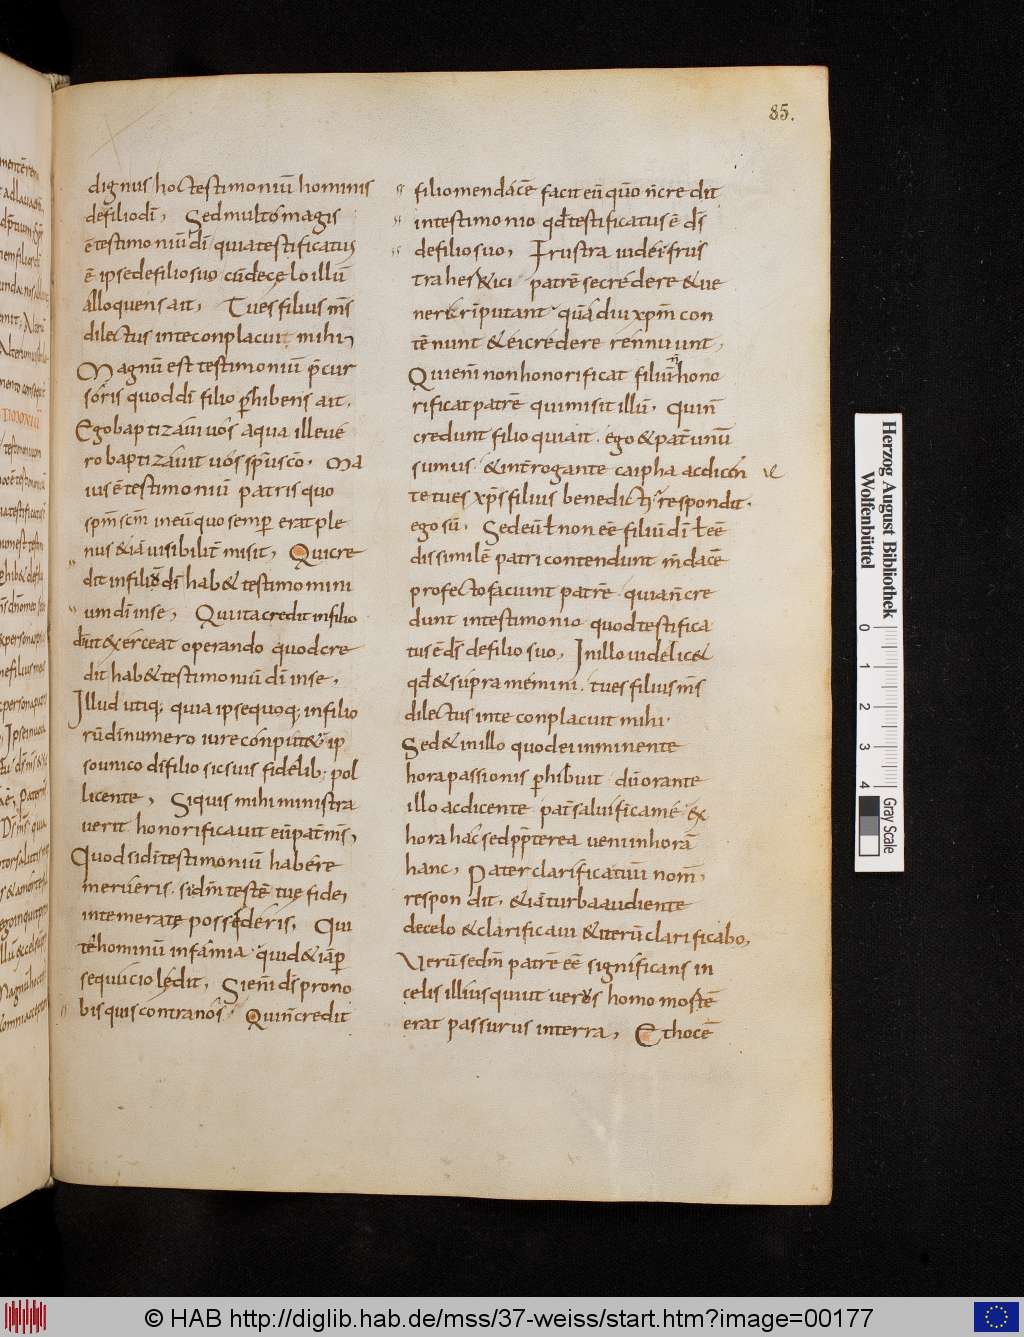 85.
dignus hoc testimoniū hominis
de filio dī, Sed multo magis
ē testimoniū dī quia testificatus
ē ipse de filio suo cū de cęlo illū
alloquens ait, Tu es filius m̄s
dilectus in te conplacuit mihi,
Magnū est testimoniū p̄cur
soris quod dī filio ꝑhibens ait.
Ego baptizavi vos aqua ille vé
ro baptizavit vos sp̄u sc̄o. Ma
ius ē testimoniū patris quo
sp̄m sc̄m in eū quo semꝑ erat ple
nus & iā visibilit̄ misit, Qui cre
dit in filiū dī hab& testimoni
um dī in se, Qui ita credit in filio
ut exerceat operando quod cre
dit hab& testimoniū dī in se,
Illud utiq; quia ipse quoq; in filio
rū dī numero iure conput&ur ip
so unico dī filio sic suis fidelib; pol
licente, Siquis mihi ministra
verit honorificavit eū pat̄ m̄s,
Quod si dī testimoniū habere
merueris. si dn̄m testē tuę fidei
intemeratę possederis, Qui
te hominū infamia quid & iā ꝑ
sequutio lędit, Si enī ds̄ pro no
bis quis contra nos. Qui n̄ credit
filio mendacē facit eū qūo n̄ credit
in testimonio qd̄ testificatus ē ds̄
de filio suo, Frustra iudei frus
tra her&ici patrē se credere & ve
nerari putant quādiu xp̄m con
tēnunt & ei credere rennuunt,
Qui enī non honorificat filiū n̄ hono
rificat patrē qui misit illū. Qui n̄
credunt filio qui ait. ego & pat̄ unū
sumus. & int̄rogante caipha ac dicen
te tu es xp̄s filius benedicti respondit.
ego sū, Sed eū ł non eē filiū dī ł eē
dissimilē patri contendunt mendacē
profecto faciunt patrē quia n̄ cre
dunt in testimonio quod testifica
tus ē ds̄ de filio suo, In illo videlic&
qd̄ & supra memini. tu es filius m̄s
dilectus in te conplacuit mihi.
Sed & in illo quod ei imminente
hora passionis ꝑhibuit dū orante
illo ac dicente pat̄ salvifica me ex
hora hac sed ꝓpterea veni in horā
hanc, Pater clarifica tuū nom̄,
respondit. & iā turba audiente
de celo & clarificavi & iterū clarificabo,
Verū se dn̄m patrē eē significans in
celis illius qui ut verus homo mortē
erat passurus in terra, Et hoc ē
Herzog August Bibliothek
Wolfenbüttel
0 1 2 3 4
Gray Scale
© HAB http://diglib.hab.de/mss/37-weiss/start.htm?image=00177